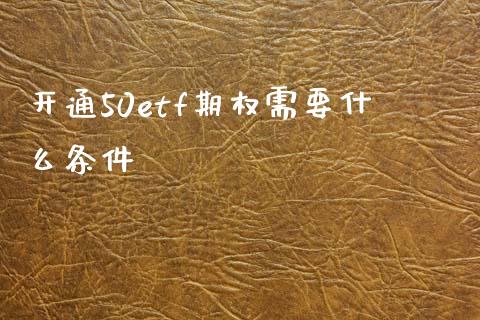 开通50etf期权需要什
么条件